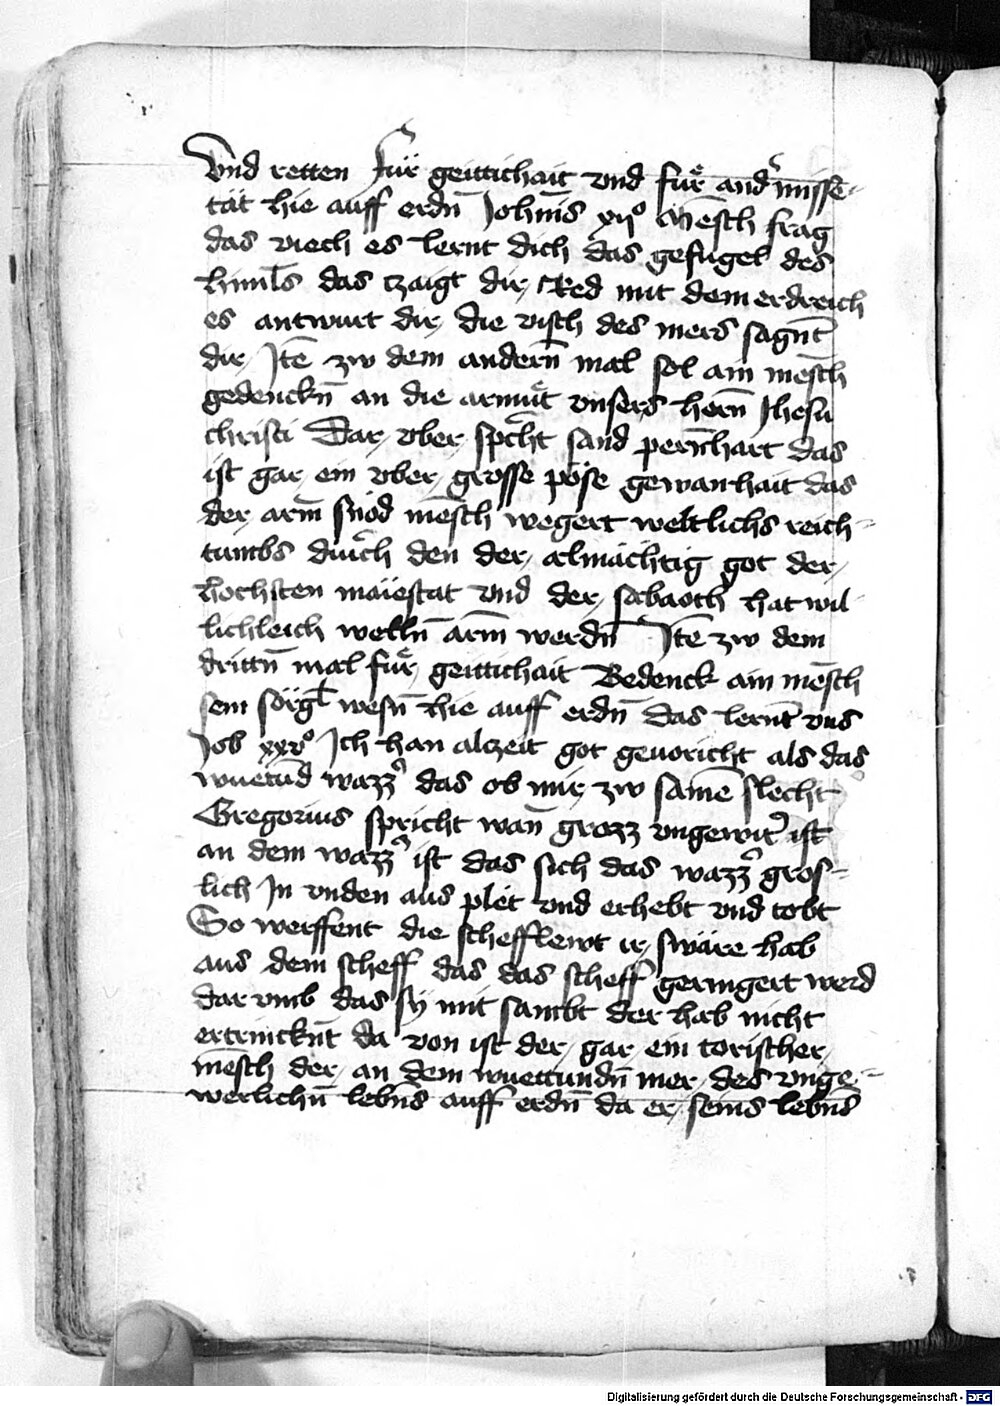 Vnd retten Für geittichait vnd fuͤr and' misse-
tät hie auff erdn̄ Joh̄nis xijº Mēsch frag
das viech es lernt dich das gefugel des
himl̄s das tzaigt dir Red mit dem erdreich
es antwurt dir die visch des mers sagnt̄
dir Jtē zw dem andern̄ mal sol ain mēsch
gedenckn̄ an die armuͤt vnsers hern̄ Jhesu
christi Dar vber spcht̄ sand pern̄hart das
ist gar ein vber grosse pöse gewanhait das
der arm̄ snöd mēsch wegert weltlichs reich-
tumbs durch den der almächtig got der
hochsten maiestat vnd der sabaoth hat wil
lichleich welln̄ arm̄ werdn̄ Jtē zw dem
drittn̄ mal fuͤr geittichait Bedenck ain mēsch
sein sörgl̄ wesn̄ hie auff erdn̄ das lernt̄ vns
Job xxxº Ich han alczeit got geuoricht als das
wuetūd wazz' das ob mir zw samē slecht
Gregorius spricht wan̄ grozz vngewit' ist
an dem wazz' ist das sich das wazz' gros-
lich In vnden aus plet vnd erhebt vnd tobt
So werffent die schefflewt ir swäre hab
aus dem scheff das das scheff geringert werd
dar vmb das sÿ mit sambt der hab nicht
ertrincknt̄ da von ist der gar ein torischer
mēsch der an dem wuettundn̄ mer des vnge-
werlichn̄ lebn̄s auff erdn̄ da er seins lebn̄s
Digitalisierung gefördert durch die Deutsche Forschungsgemeinschaft - DFG